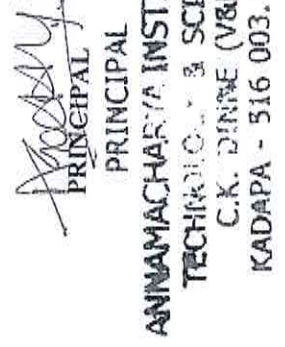 PRINCIPAL
PRINCIPAL
ANNAMACHARYA INST
TECHNOLOGY & SCI
C.K. DINNE (V&
KADAPA - 516 003.